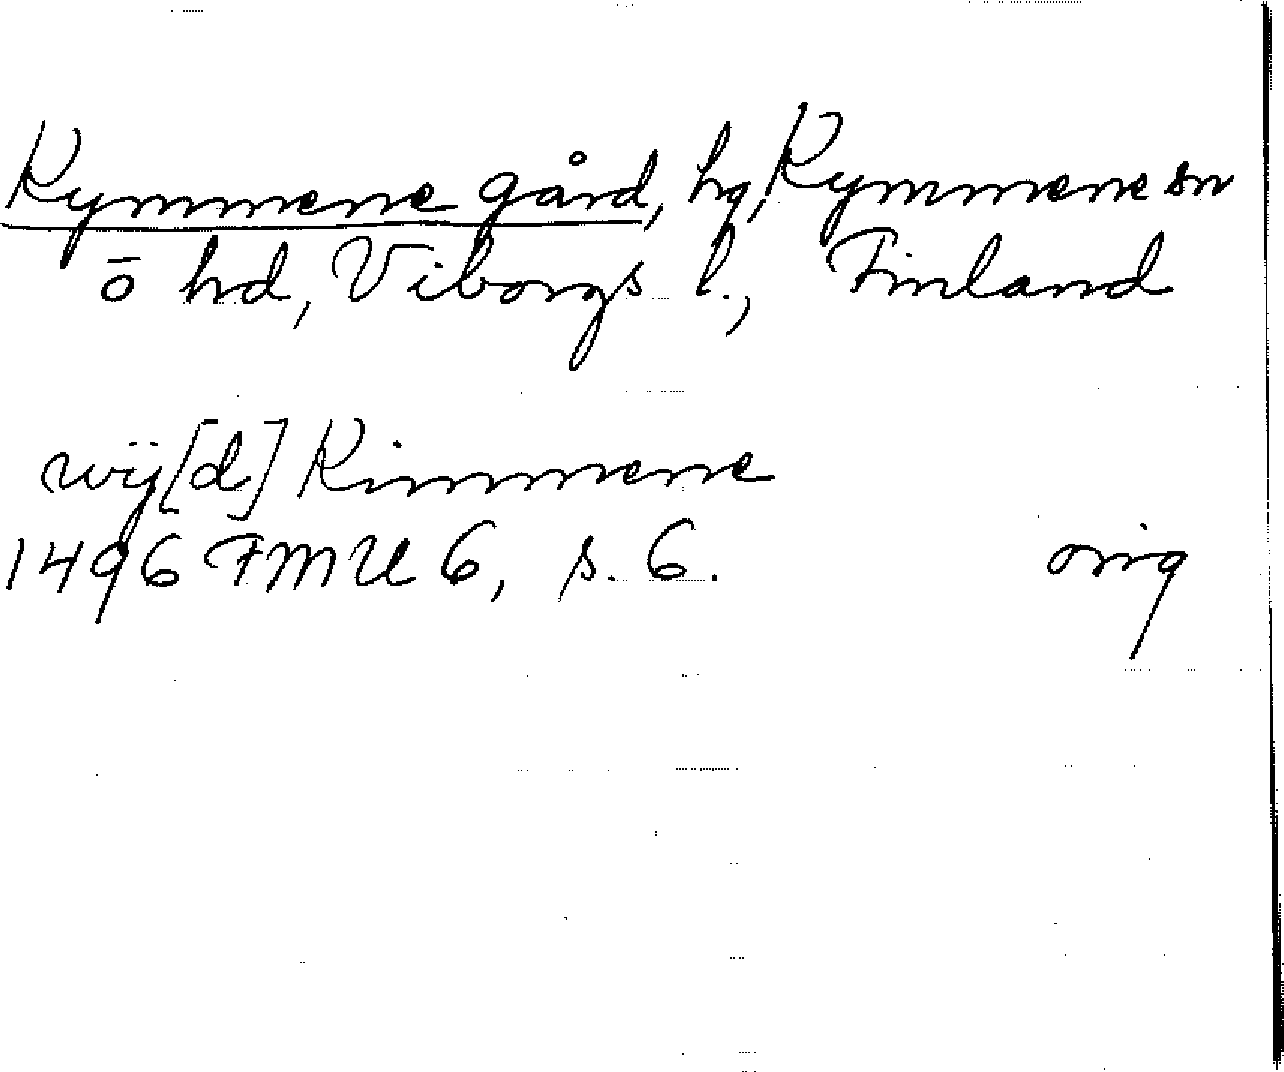 Kymmene gård, hg, Kymmene sn
ō hd, Viborgs l., Finland
wÿ[d] Kimmene
1496 FMU 6, s. 6. orig